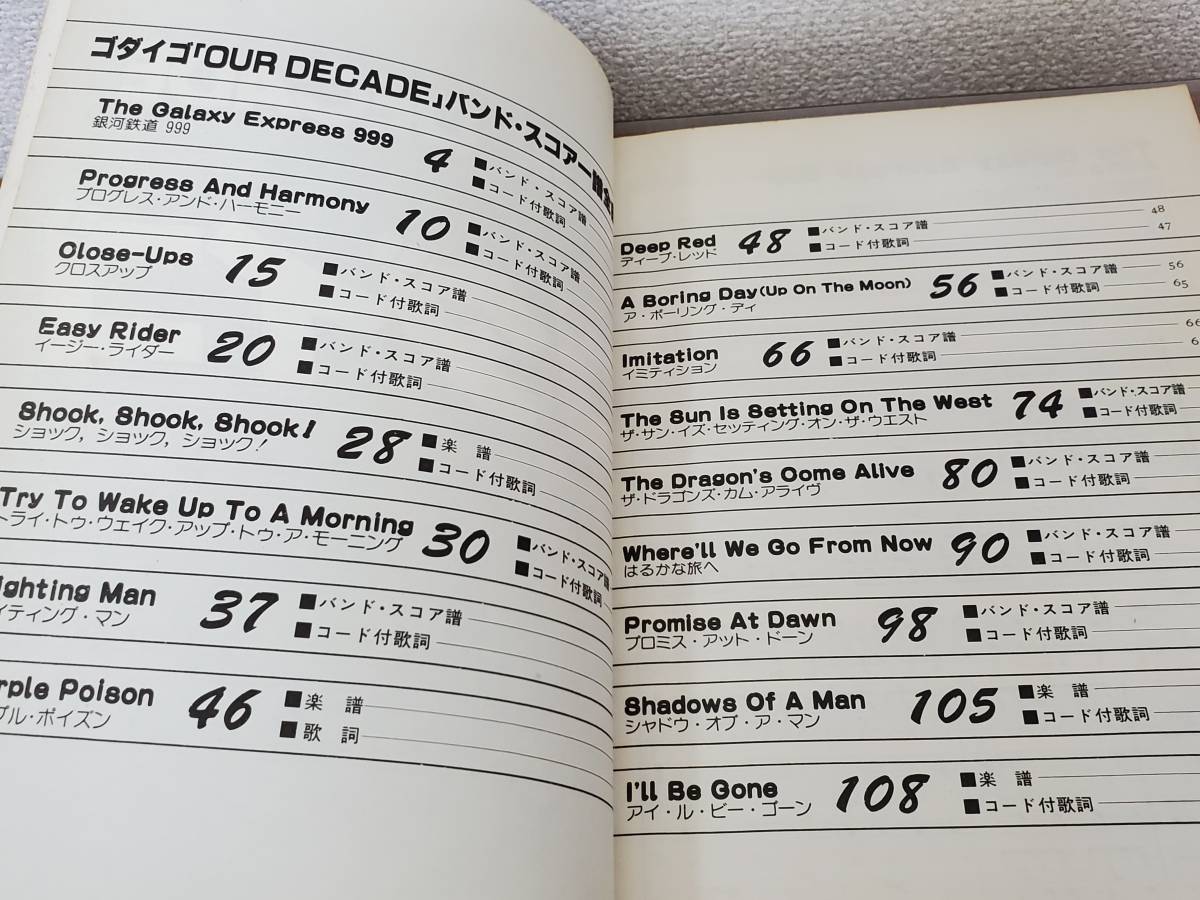 ゴダイゴ「OUR DECADE」バンド・スコアー
The Galaxy Express 999
銀河鉄道 999
4
■バンド・スコア譜
■コード付歌詞
Progress And Harmony
プログレス・アンド・ハーモニー
10
■バンド・スコア譜
■コード付歌詞
Close-Ups
クロスアップ
15
■バンド・スコア譜
■コード付歌詞
Easy Rider
イージー・ライダー
20
■バンド・スコア譜
■コード付歌詞
Shook, Shook, Shook!
ショック, ショック, ショック!
28
■楽 譜
■コード付歌詞
Try To Wake Up To A Morning
トライ・トゥ・ウェイク・アップ・トゥ・ア・モーニング
30
■バンド・スコア譜
■コード付歌詞
ighting Man
イティング・マン
37
■バンド・スコア譜
■コード付歌詞
rple Poison
プル・ポイズン
46
■楽 譜
■歌 詞
Deep Red
ディープ・レッド
48
■バンド・スコア譜 48
■コード付歌詞 47
A Boring Day(Up On The Moon)
ア・ボーリング・デイ
56
■バンド・スコア譜 56
■コード付歌詞 65
Imitation
イミティション
66
■バンド・スコア譜 66
■コード付歌詞 6
The Sun Is Setting On The West
ザ・サン・イズ・セッティング・オン・ザ・ウエスト
74
■バンド・スコア譜
■コード付歌詞
The Dragon's Come Alive
ザ・ドラゴンズ・カム・アライヴ
80
■バンド・スコア譜
■コード付歌詞
Where'll We Go From Now
はるかな旅へ
90
■バンド・スコア譜
■コード付歌詞
Promise At Dawn
プロミス・アット・ドーン
98
■バンド・スコア譜
■コード付歌詞
Shadows Of A Man
シャドウ・オブ・ア・マン
105
■楽 譜
■コード付歌詞
I'll Be Gone
アイ・ル・ビー・ゴーン
108
■楽 譜
■コード付歌詞